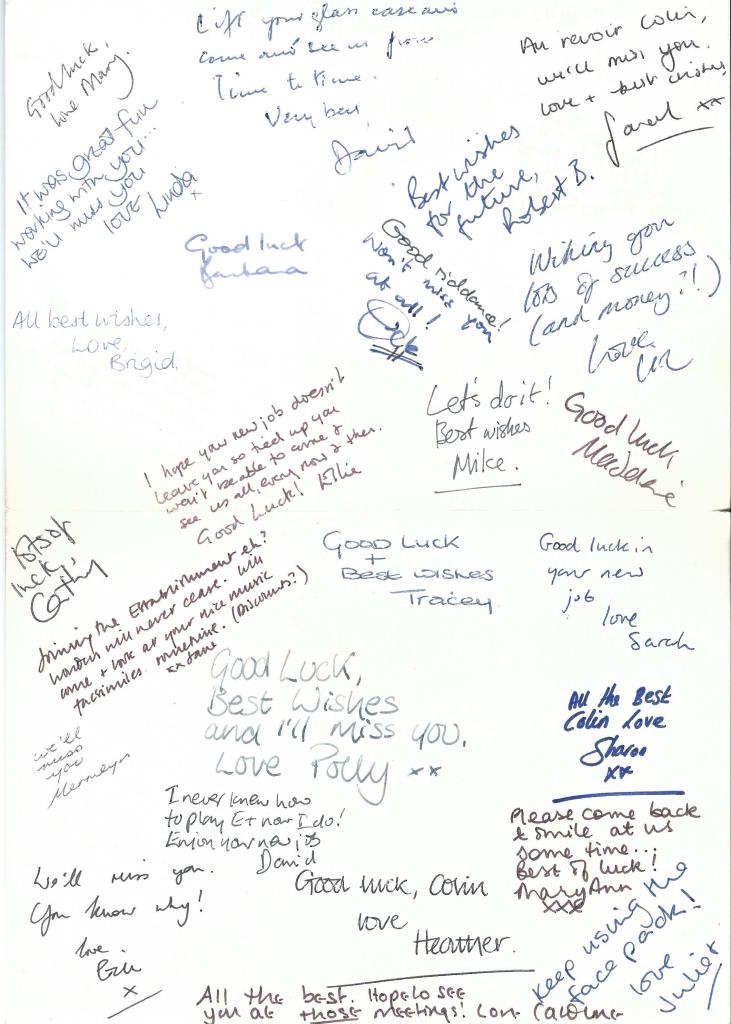 Good luck,
love Mary.
Lift your glass case and
come and see us from
Time to time.
Very best,
David
Au revoir Colin,
we'll miss you.
love + best wishes
xx
It was great fun
working with you...
we'll miss you
love Linda
x
Best wishes
for the
future,
Robert B.
Good luck
Barbara
Good riddance!
Won't miss you
at all!
Wishing you
lots of success
(and money?!)
Love
All best wishes,
Love,
Brigid.
Let's do it!
Best wishes
Mike.
Good luck
I hope your new job doesn't
leave you so tied up you
won't be able to come &
see us all, every now & then.
Good Luck! Ellie
Lots of
luck
Cathy
Good Luck
+
Best wishes
Tracey
Good luck in
your new
job
love
Sarah
Joining the Establishment eh?
will never cease. Will
come + look at your nice music
facsimiles sometime. (Discounts?)
xx Jane
Good Luck,
Best Wishes
and I'll miss you.
Love Polly xx
All the Best
Colin Love
Sharon
xx
we'll
miss
you
I never knew how
to play Et now I do!
Enjoy your new job
David
Please come back
& smile at us
some time...
Best of luck!
MaryAnn
xxx
We'll miss you.
You know why!
love.
x
Good luck, Colin
love
Heather.
Keep using the
face pack!
love
Juliet
All the best. Hope to see
you at those meetings! Love Caroline